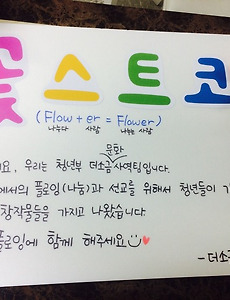 꽃스트코
(Flow + er = Flower)
나눈다 사람 나누는 사람
문화
요, 우리는 청년부 더소금 사역팀입니다.
에서의 플로잉(나눔)과 선교를 위해서 청년들이
창작물들을 가지고 나왔습니다.
플로잉에 함께 해주세요
- 더소